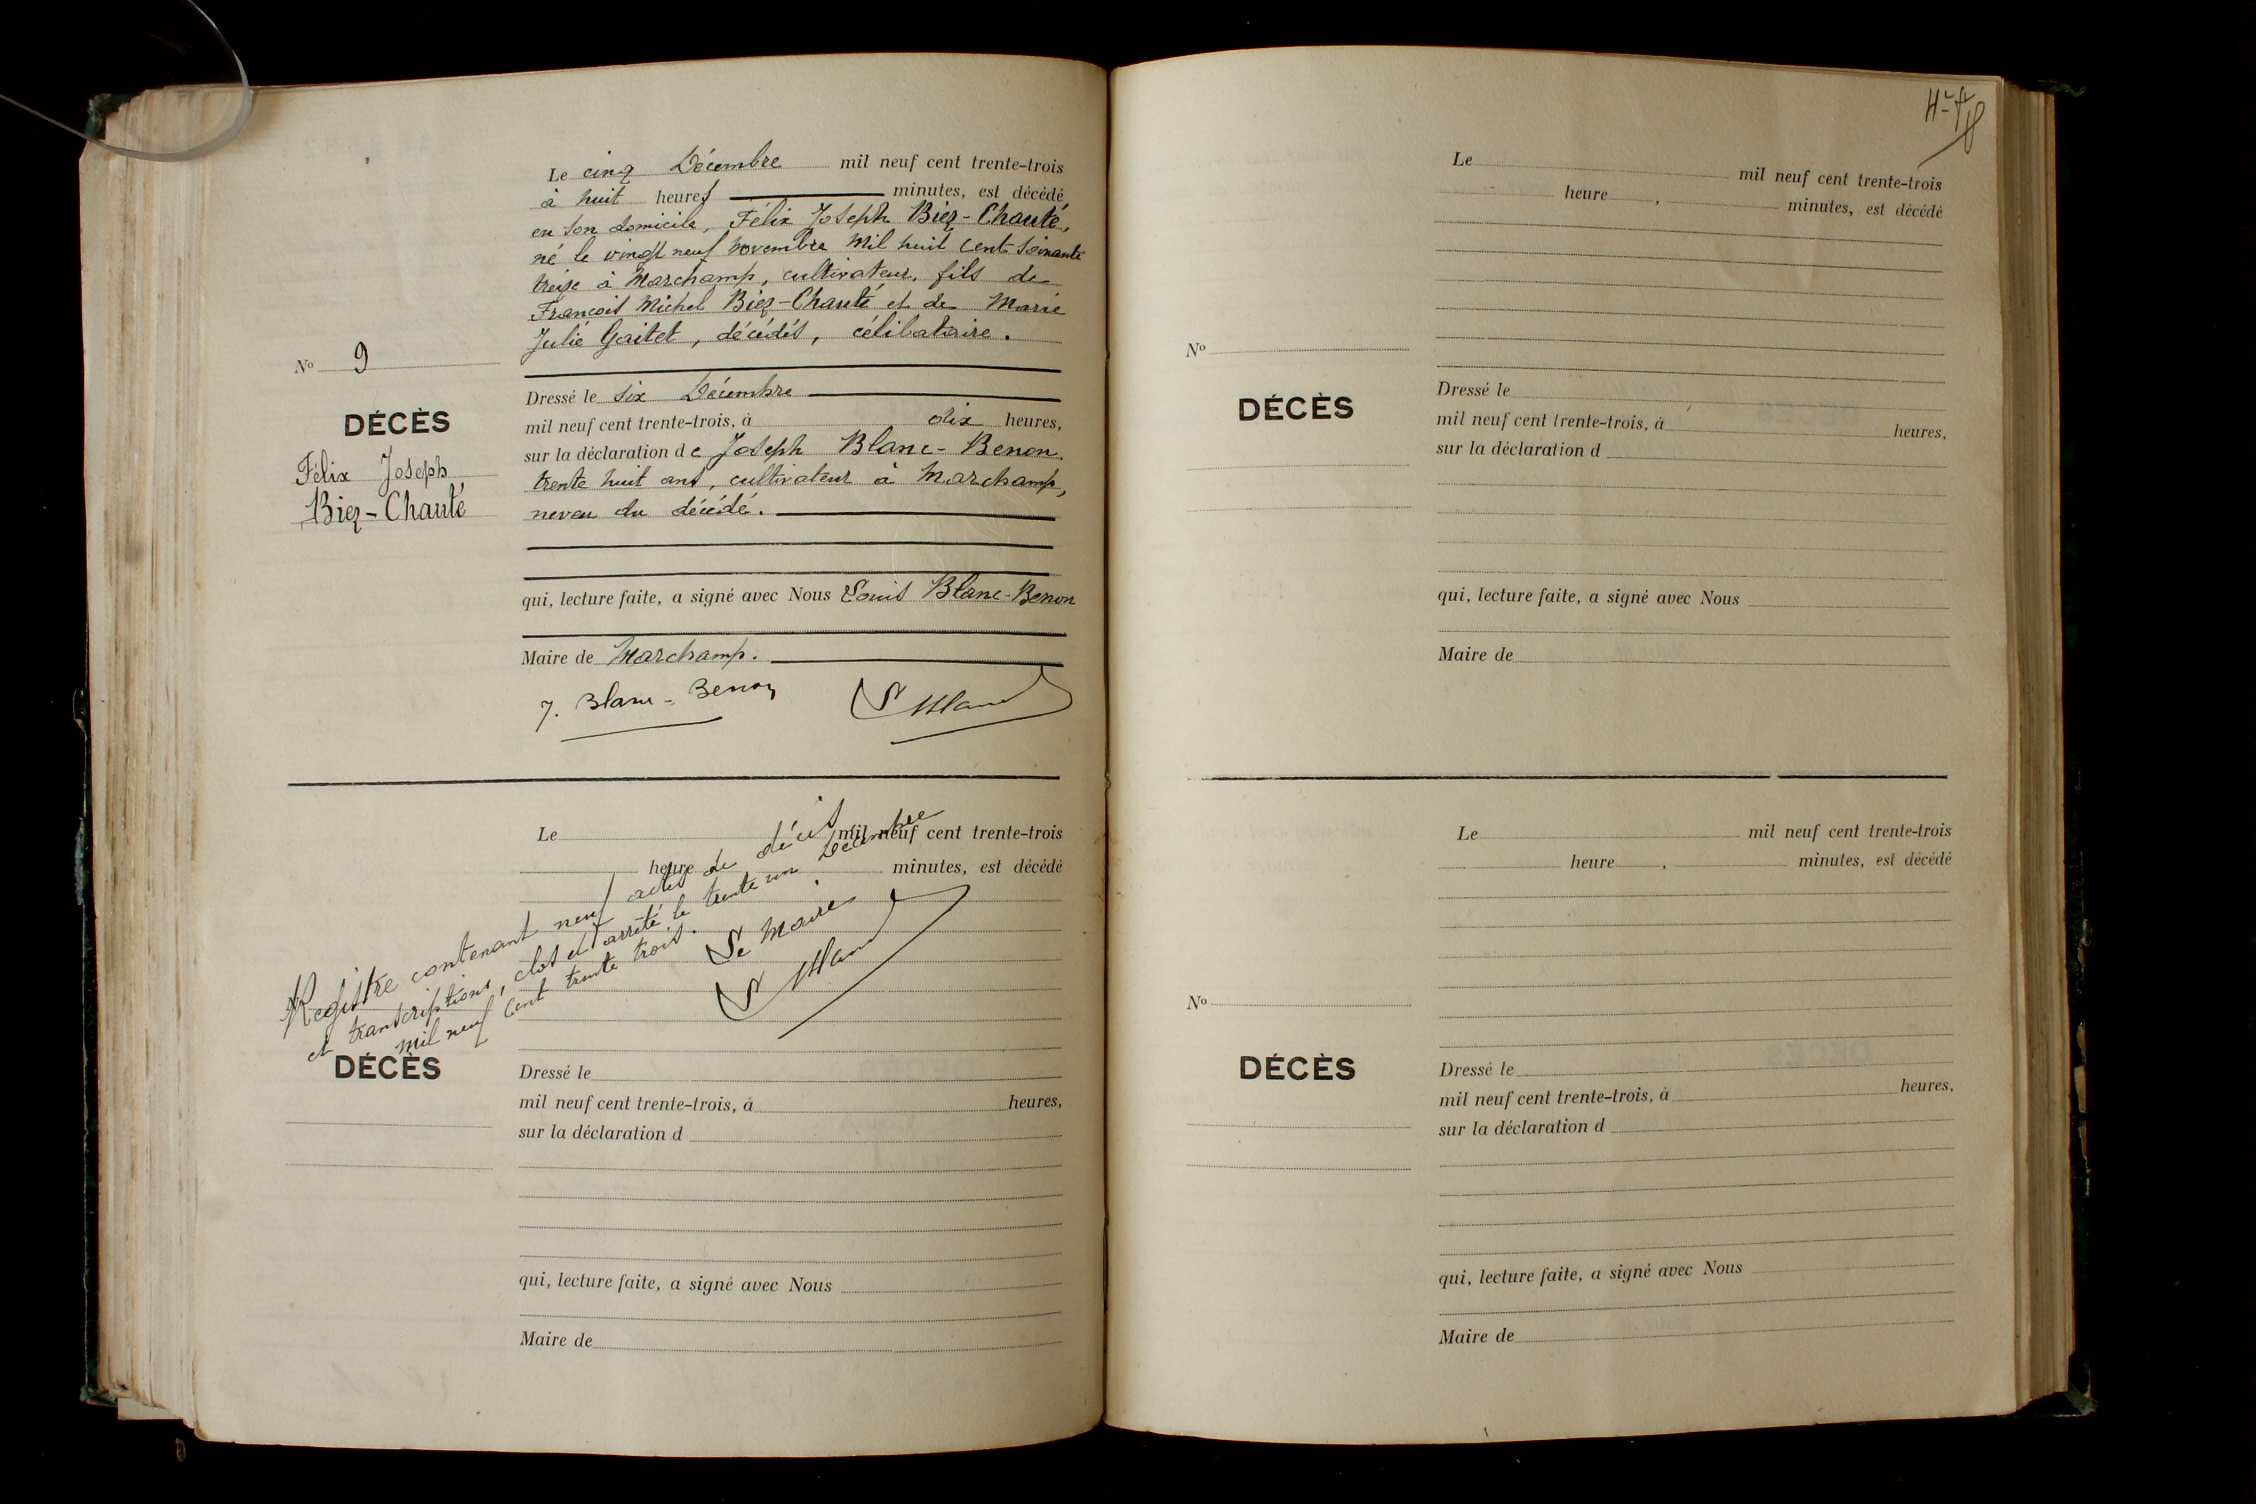 Le cinq Décembre mil neuf cent trente-trois
à huit heures minutes, est décédé
en son domicile, Félix Joseph Biez-Chauté,
né le vingt neuf novembre mil huit cent soixante
treize à Marchamp, cultivateur, fils de
François Michel Biez-Chauté et de Marie
Julie Gaitet, décédés, célibataire.
No 9
DÉCÈS
Félix Joseph
Biez-Chauté
Dressé le six Décembre
mil neuf cent trente-trois, à dix heures,
sur la déclaration de Joseph Blanc-Benon.
trente huit ans, cultivateur à Marchamp,
neveu du décédé.
qui, lecture faite, a signé avec Nous Louis Blanc-Benon
Maire de Marchamp.
J. Blanc-Benon
Le mil neuf cent trente-trois
heure minutes, est décédé
Registre contenant neuf actes de décès
et transcriptions, clos et arrêté le trente un Décembre
mil neuf cent trente trois.
Le Maire
DÉCÈS
Dressé le
mil neuf cent trente-trois, à heures,
sur la déclaration d
qui, lecture faite, a signé avec Nous
Maire de
Le mil neuf cent trente-trois
heure , minutes, est décédé
No
DÉCÈS
Dressé le
mil neuf cent trente-trois, à heures,
sur la déclaration d
qui, lecture faite, a signé avec Nous
Maire de
Le mil neuf cent trente-trois
heure , minutes, est décédé
No
DÉCÈS
Dressé le
mil neuf cent trente-trois, à heures,
sur la déclaration d
qui, lecture faite, a signé avec Nous
Maire de